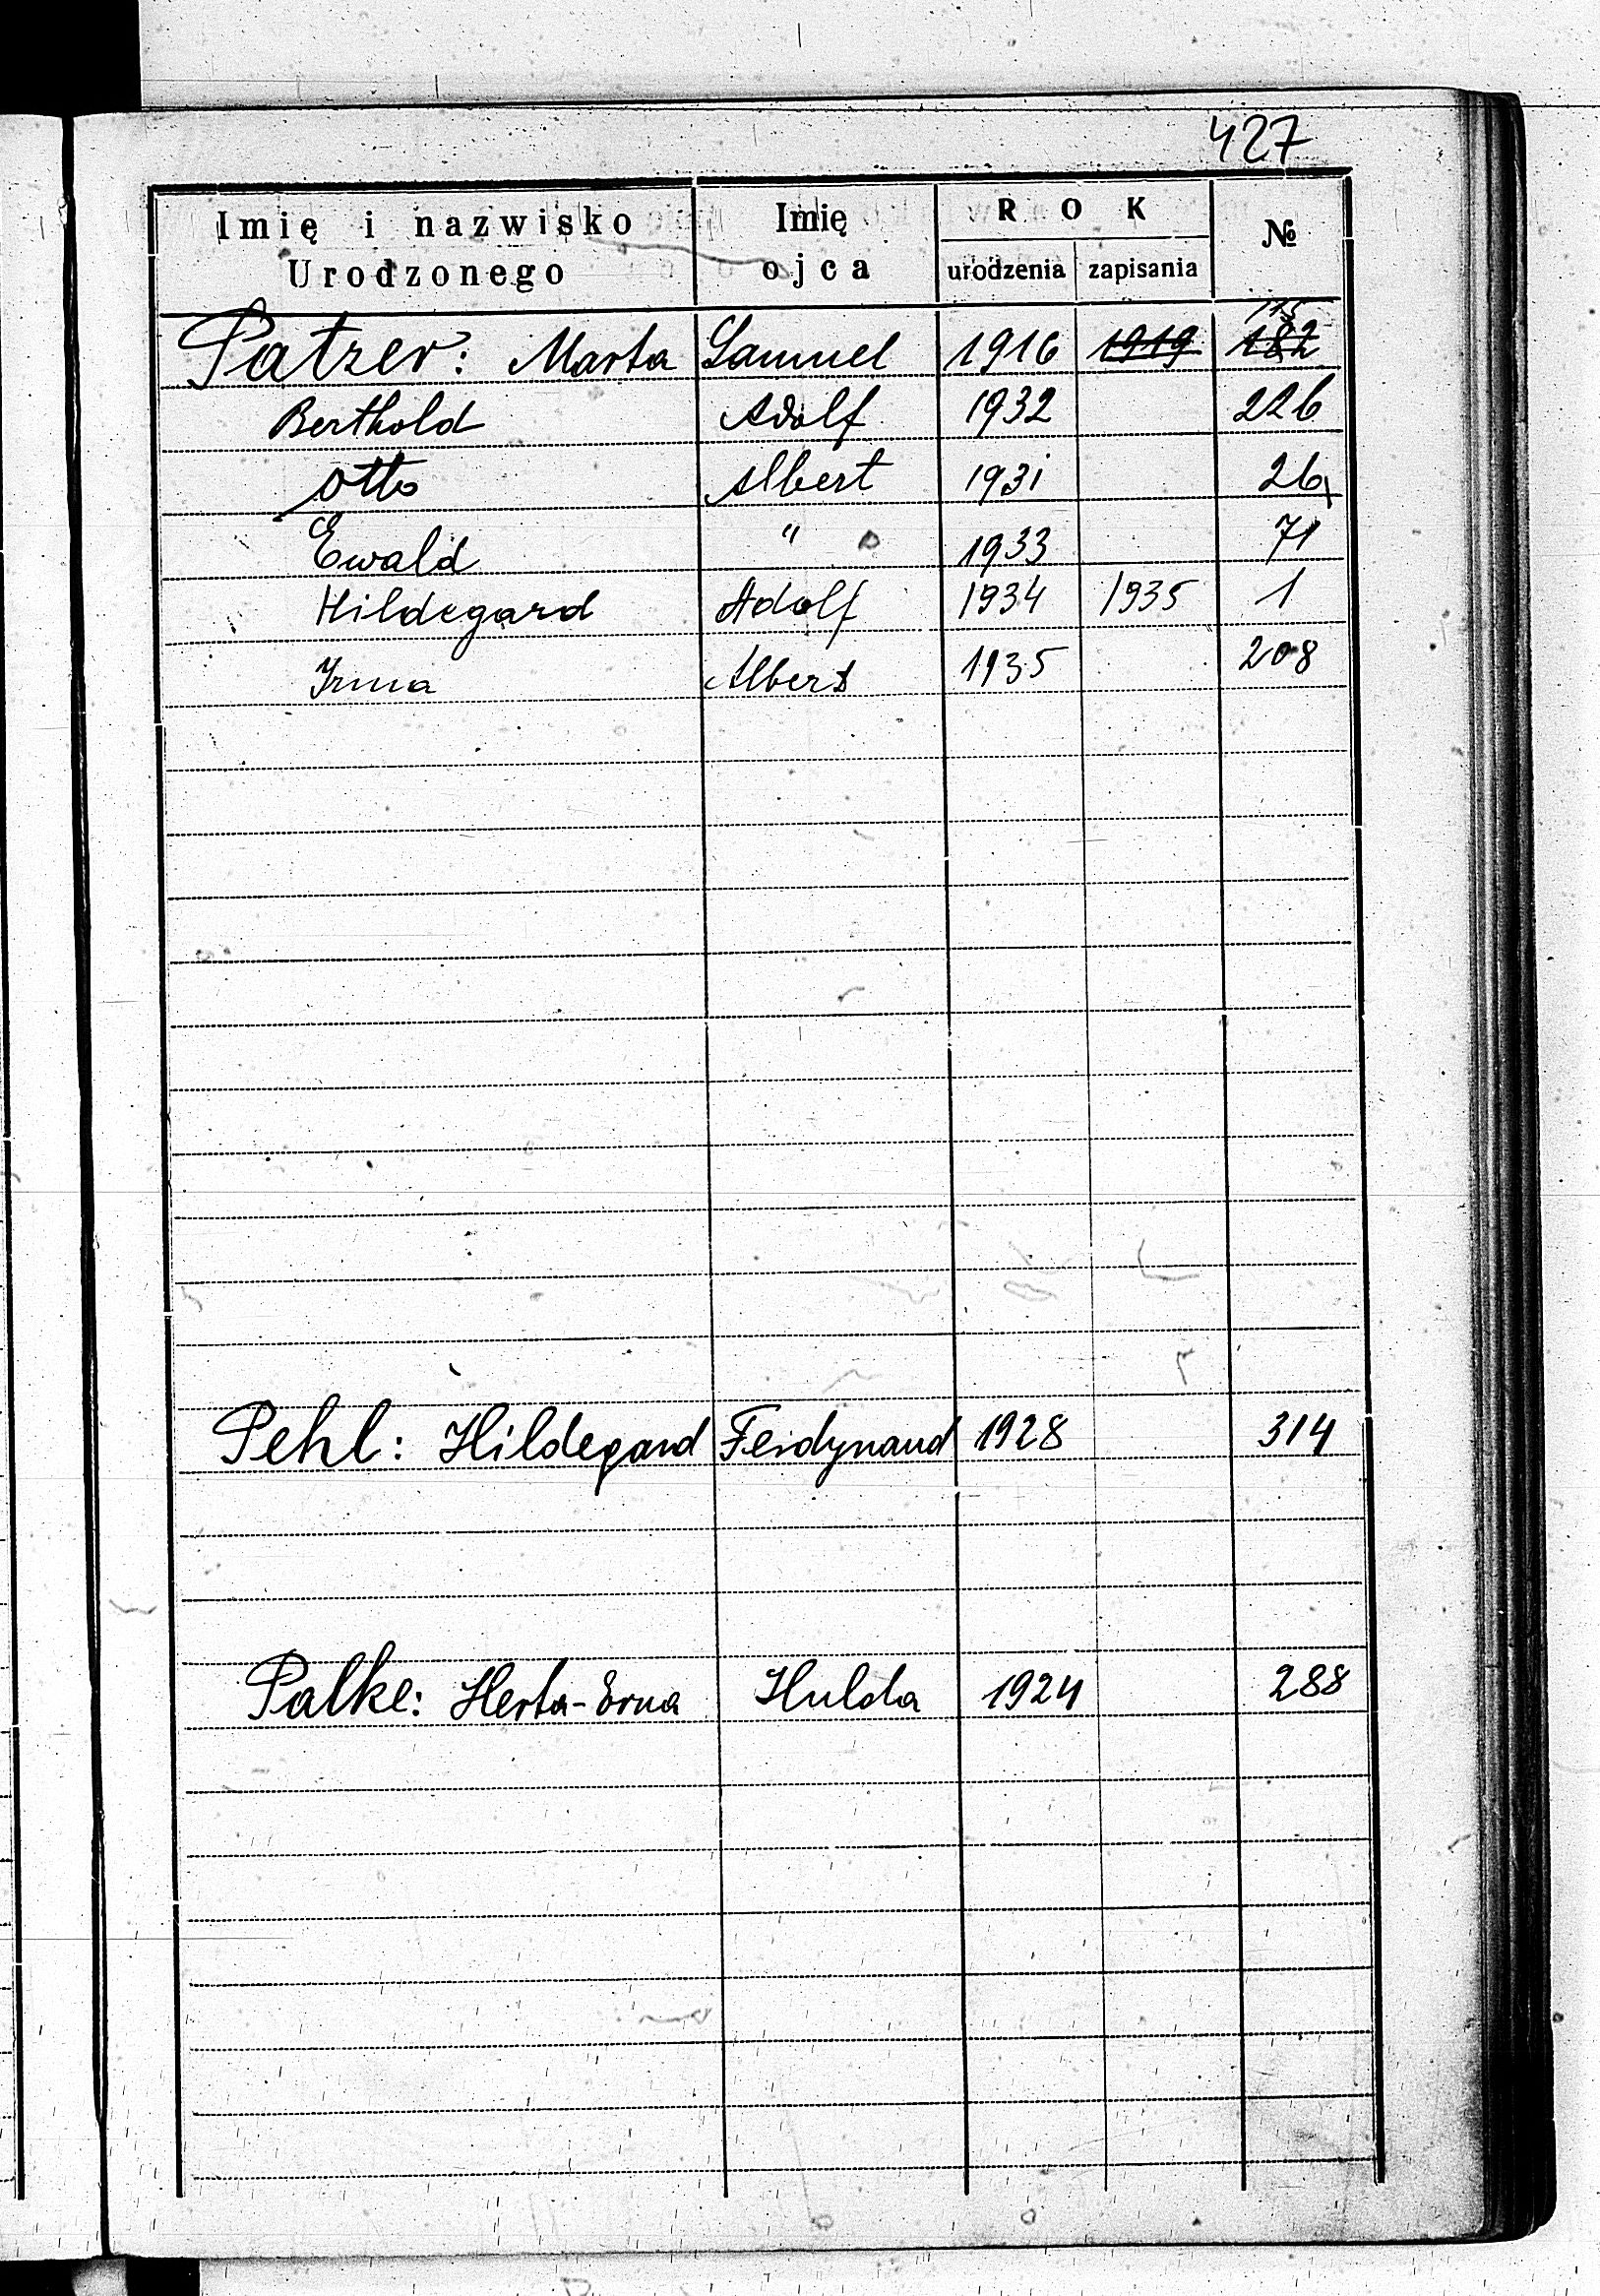 427
Imię i nazwisko Urodzonego Imię ojca ROK urodzenia zapisania №
115
Patzer: Marta Samuel 1916 1919 182
Berthold Adolf 1932 226
Otto Albert 1931 26
Ewald " 1933 71
Hildegard Adolf 1934 1935 1
Irma Albert 1935 208
Pehl: Hildegard Ferdynand 1928 314
Palke: Herta-Erna Hulda 1924 288